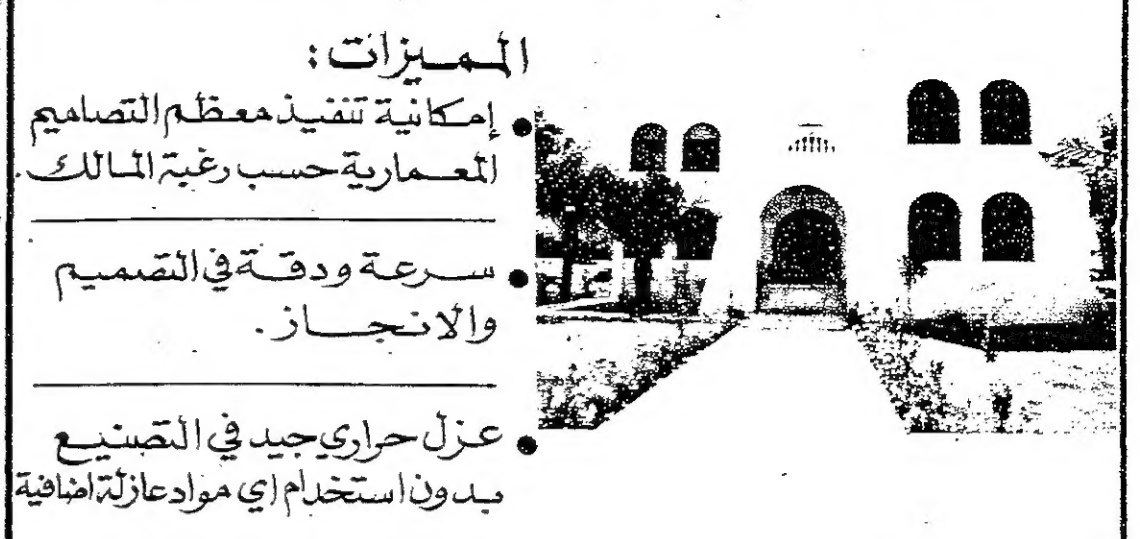 المميزات:
• إمكانية تنفيذ معظم التصاميم
المعمارية حسب رغبة المالك.
• سرعة ودقة في التصميم
والانجاز.
• عزل حراري جيد في التصنيع
بدون استخدام اي مواد عازلة اضافية